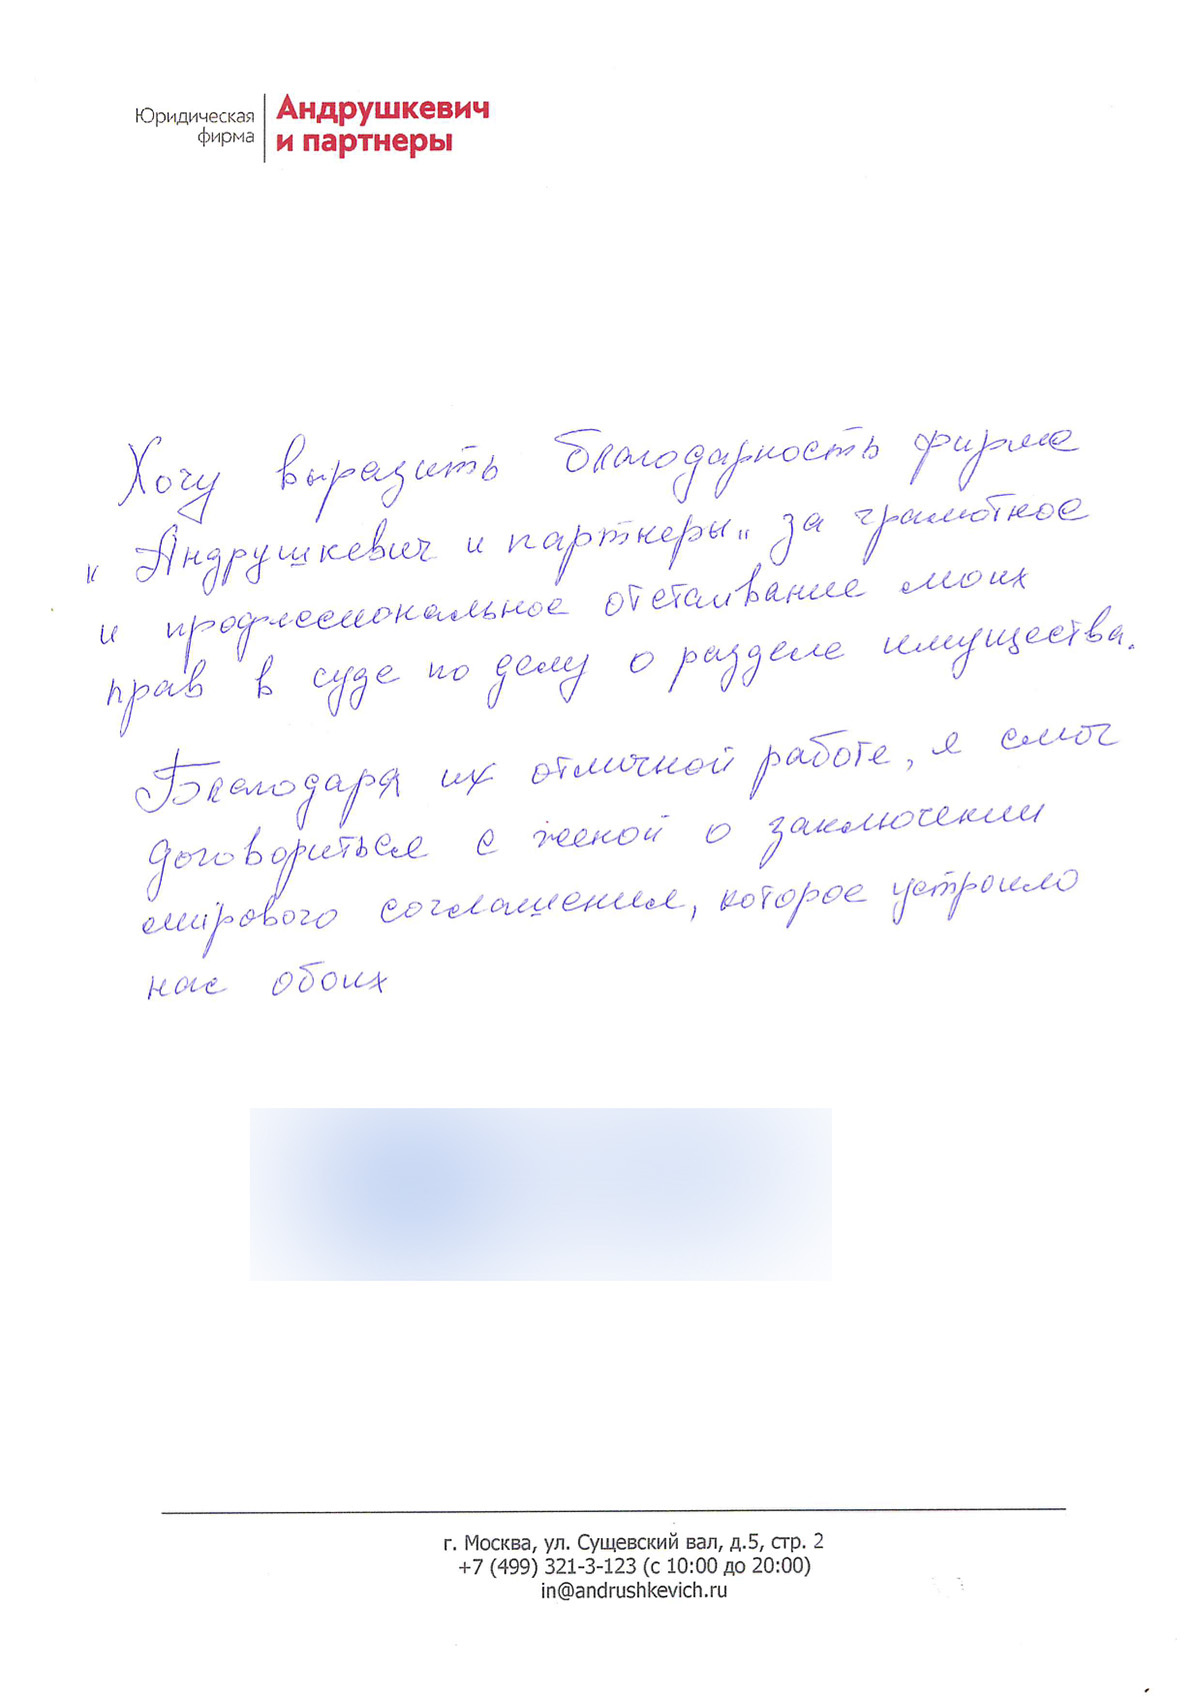 Юридическая
фирма
Андрушкевич
и партнеры
Хочу выразить благодарность фирме
"Андрушкевич и партнеры" за грамотное
и профессиональное отстаивание моих
прав в суде по делу о разделе имущества.
Благодаря их отличной работе, я смог
договориться с женой о заключении
мирового соглашения, которое устроило
нас обоих
г. Москва, ул. Сущевский вал, д.5, стр. 2
+7 (499) 321-3-123 (с 10:00 до 20:00)
in@andrushkevich.ru